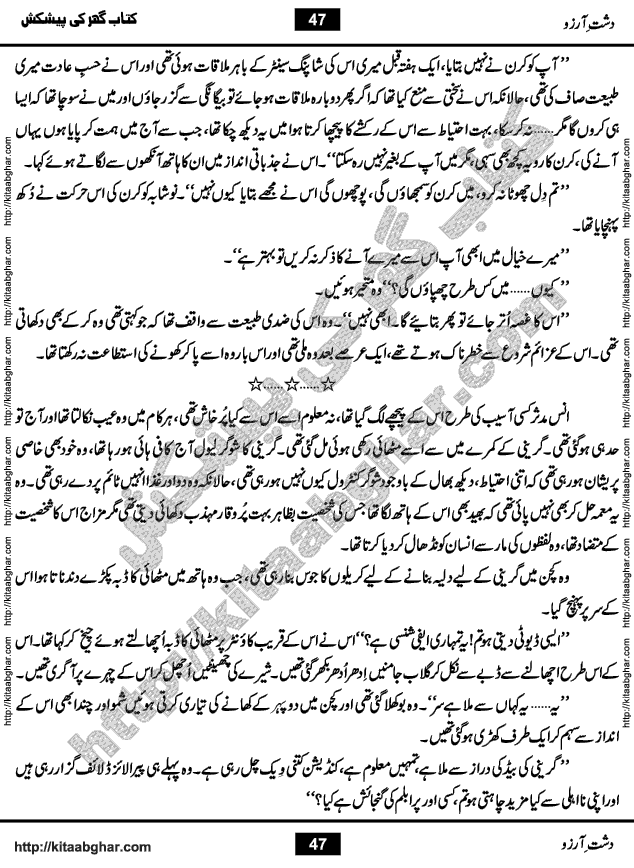 کتاب گھر کی پیشکش 47 دشتِ آرزو
’’آپ کو کرن نے نہیں بتایا، ایک ہفتہ قبل میری اس کی شاپنگ سینٹر کے باہر ملاقات ہوئی تھی اور اس نے حسبِ عادت میری
طبیعت صاف کی تھی، حالانکہ اس نے سختی سے منع کیا تھا کہ اگر پھر دوبارہ ملاقات ہو جائے تو بیگانگی سے گزر جاؤں اور میں نے سوچا تھا کہ ایسا
ہی کروں گا مگر...... نہ کر سکا، بہت احتیاط سے اس کے رکشے کا پیچھا کرتا ہوا میں یہ دیکھ چکا تھا، جب سے آج میں ہمت کر پایا ہوں یہاں
آنے کی، کرن کا رویہ کچھ بھی سہی، مگر میں آپ کے بغیر نہیں رہ سکتا‘‘۔ اس نے جذباتی انداز میں ان کا ہاتھ آنکھوں سے لگاتے ہوئے کہا۔
’’تم دِل چھوٹا نہ کرو، میں کرن کو سمجھاؤں گی، پوچھوں گی اس نے مجھے بتایا کیوں نہیں‘‘۔ نوشابہ کو کرن کی اس حرکت نے دُکھ
پہنچایا تھا۔
’’میرے خیال میں ابھی آپ اس سے میرے آنے کا ذکر نہ کریں تو بہتر ہے‘‘۔
’’کیوں...... میں کس طرح چھپاؤں گی؟‘‘ وہ متحیر ہوئیں۔
’’اس کا غصہ اُتر جائے تو پھر بتایئے گا۔ ابھی نہیں‘‘۔ وہ اس کی ضدی طبیعت سے واقف تھا کہ جو کہتی تھی وہ کر کے بھی دکھاتی
تھی۔ اس کے عزائم شروع سے خطرناک ہوتے تھے، ایک عرصے بعد وہ ملی تھی اور اس بار وہ اسے پا کر کھونے کی استطاعت نہ رکھتا تھا۔
☆......☆......☆
انس مدثر کسی آسیب کی طرح اس کے پیچھے لگ گیا تھا، نہ معلوم اسے اس سے کیا پُرخاش تھی، ہر کام میں وہ عیب نکالتا تھا اور آج تو
حد ہی ہو گئی تھی۔ گرینی کے کمرے میں سے اسے مٹھائی رکھی ہوئی مل گئی تھی۔ گرینی کا شوگر لیول آج کافی ہائی ہو رہا تھا، وہ خود بھی خاصی
پریشان ہو رہی تھی کہ اتنی احتیاط، دیکھ بھال کے باوجود شوگر کنٹرول کیوں نہیں ہو رہی تھی، حالانکہ وہ دوا اور غذا انہیں ٹائم پر دے رہی تھی۔ وہ
یہ معمہ حل کر بھی نہیں پائی تھی کہ بھید بھی اس کے ہاتھ لگا تھا، جس کی شخصیت بظاہر بہت پُروقار مہذب دکھائی دیتی تھی مگر مزاج اس کا شخصیت
کے متضاد تھا، وہ لفظوں کی مار سے انسان کو نڈھال کر دیا کرتا تھا۔
وہ کچن میں گرینی کے لیے دلیہ بنانے کے لیے کریلوں کا جوس بنا رہی تھی، جب وہ ہاتھ میں مٹھائی کا ڈبہ پکڑے دندناتا ہوا اس
کے سر پر پہنچ گیا۔
’’ایسی ڈیوٹی دیتی ہو تم! یہ تمہاری ایفی شنسی ہے؟‘‘ اس نے اس کے قریب کاؤنٹر پر مٹھائی کا ڈبہ اُچھالتے ہوئے چیخ کر کہا تھا۔ اس
کے اس طرح اچھالنے سے ڈبے سے نکل کر گلاب جامنیں اِدھر اُدھر بکھر گئی تھیں۔ شیرے کی چھینٹیں اُچھل کر اس کے چہرے پر آ گری تھیں۔
’’یہ...... یہ کہاں سے ملا ہے سر‘‘۔ وہ بوکھلا گئی تھی اور کچن میں دوپہر کے کھانے کی تیاری کرتی ہوئیں شمو اور چندا بھی اس کے
انداز سے سہم کر ایک طرف کھڑی ہو گئی تھیں۔
’’گرینی کی بیڈ کی دراز سے ملا ہے، تمہیں معلوم ہے، کنڈیشن کتنی ویک چل رہی ہے۔ وہ پہلے ہی پیرالائزڈ لائف گزار رہی ہیں
اور اپنی نااہلی سے کیا مزید چاہتی ہو تم، کسی اور پرابلم کی گنجائش ہے کیا؟‘‘
http://kitaabghar.com 47 دشتِ آرزو
http://kitaabghar.com
http://kitaabghar.com
http://kitaabghar.com
http://kitaabghar.com
http://kitaabghar.com
http://kitaabghar.com
http://kitaabghar.com
http://kitaabghar.com
کتاب گھر کی پیشکش
http://kitaabghar.com